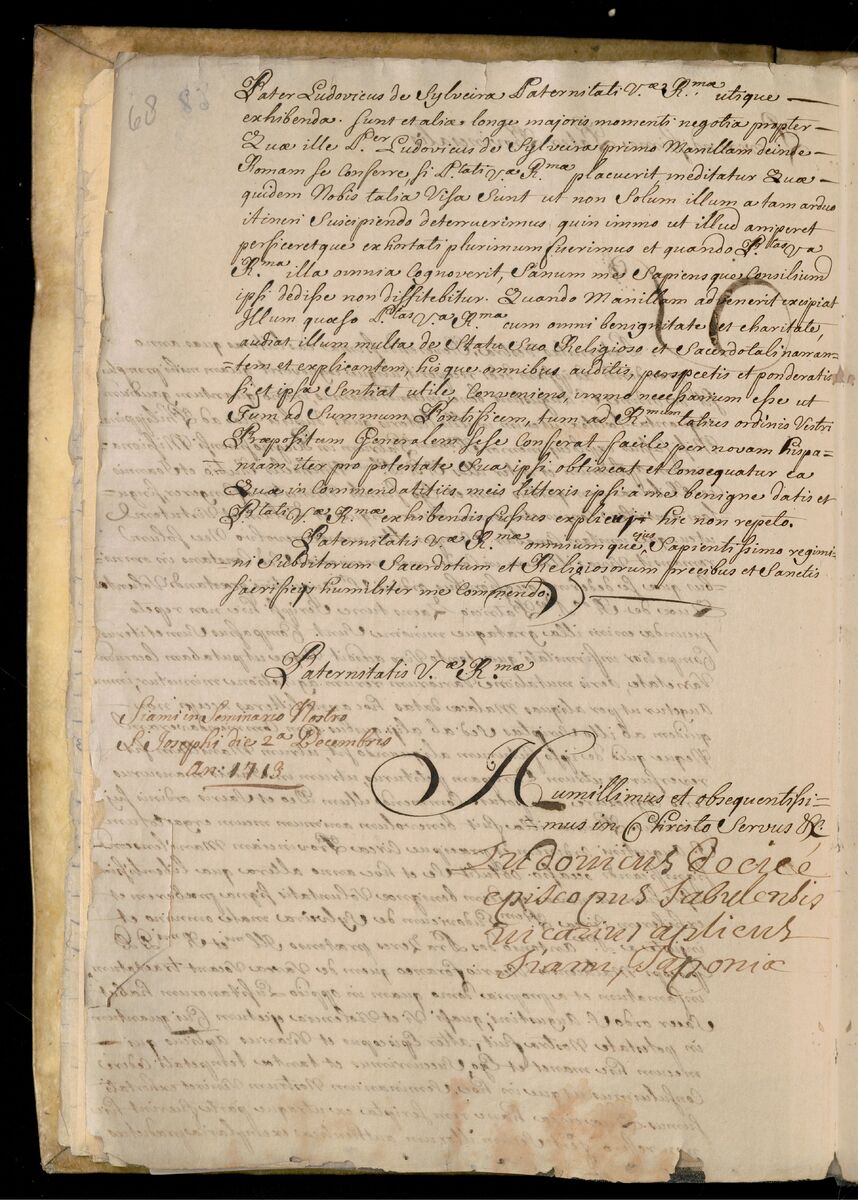 68 83
Pater Ludovicus de Sylveira Paternitati V.æ R.mæ utique
exhibenda. Sunt et alia longe majoris momenti negotia propter
Quæ ille P.er Ludovicus de Sylveira primo Manillam deinde
Romam se Conferre si P.tati Væ R.mæ placuerit meditatur Quæ
quidem Nobis talia Visa Sunt ut non Solum illum a tam arduo
itineri Suscipiendo deterruerimus quin immo ut illud arriperet
perficeretque exhortati plurimum fuerimus et quando P.tas Va
R.ma illa omnia Cognoverit, Sanum me Sapiensque Consilium
ipsi dedisse non diffitebitur. Quando Manillam advenerit excipiat
Illum quæso P.tas Va R.ma cum omni benignitate et charitate,
audiat illum multa de Statu Suo Religioso et Sacerdotali narran-
=tem et explicantem, hisque omnibus auditis, perspectis et ponderatis
si et ipsa Sentiat utile, Conveniens, immo necessarium esse ut
Tum ad Summum Pontificem, tum ad R.mum totius ordinis Vestri
Præpositum Generalem sese Conferat facile per novam hispa-
=niam iter pro potestate Sua ipsi obtineat et Consequatur ea
Quæ in Commendatitiis meis litteris ipsi à me benigne datis et
P.tati Væ R.mæ exhibendis fusius explicui hic non repeto.
Paternitatis V.æ R.mæ omniumque ejus Sapientissimo regimi-
ni Subditorum Sacerdotum et Religiosorum precibus et Sanctis
Sacrificijs humiliter me Commendo.
Paternitatis V.æ R.mæ
Siami in Seminario Nostro
S. Josephi die 2a Decembris
An: 1713
Humillimus et obsequentissi=
=mus in Christo Servus &c.
Ludovicus de cicé
episcopus Sabulensis
vicarius aplicus
Siami, Japoniæ